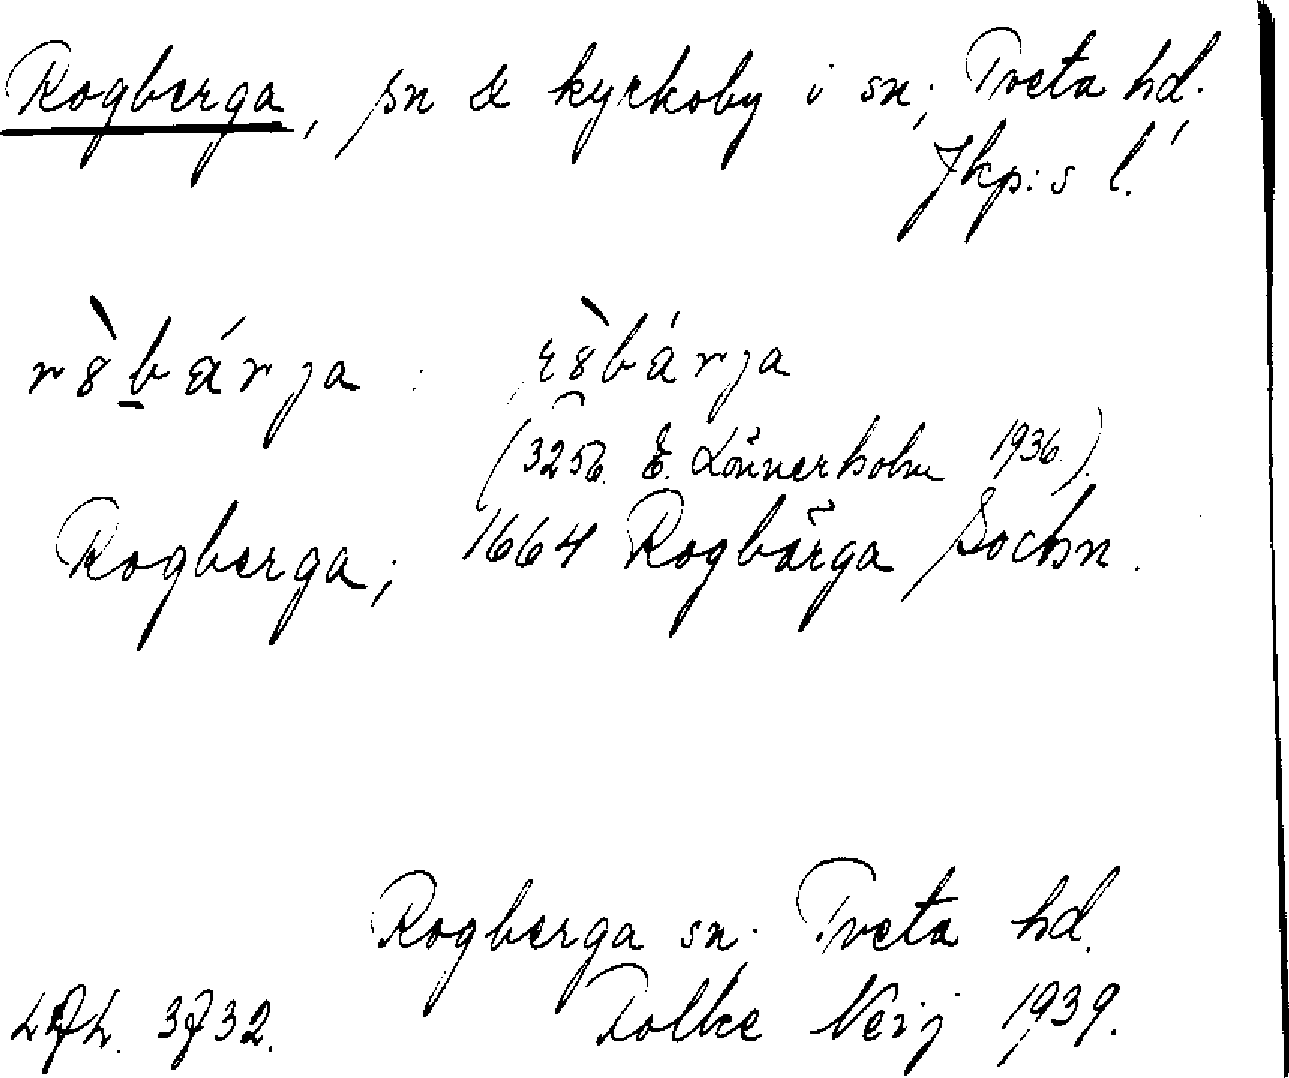 Rogberga, sn & kyrkoby i sn; Tveta hd.,
Jkp:s l.
rȣ̀bárja : rȣ̀bárja
(3256. E. Lönnerholm 1936.)
Rogberga; 1664 Rogbärga Sochn.
Rogberga sn. Tveta hd.
Folke Neij 1939.
3732.